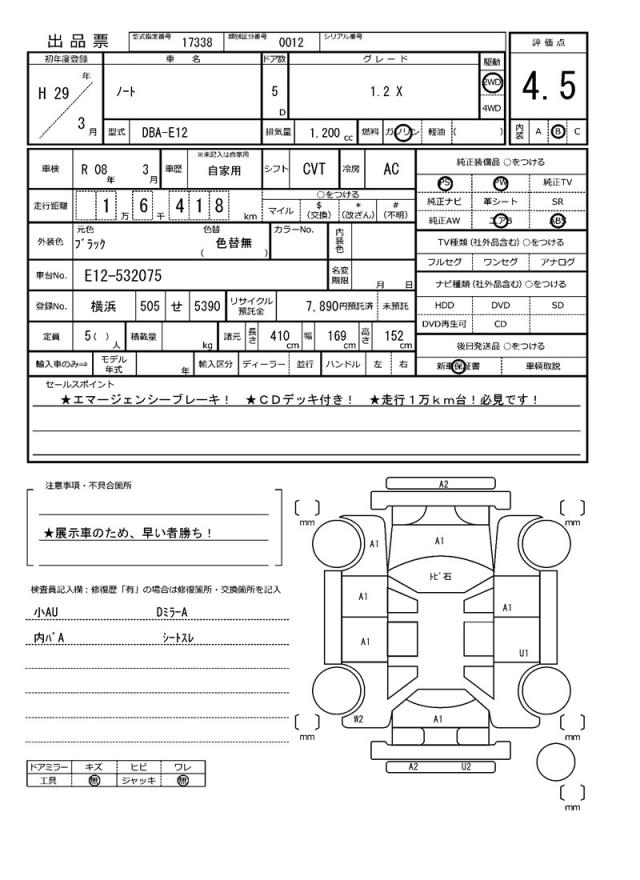 出品票 型式指定番号 17338 類別区分番号 0012 シリアル番号
評価点
4.5
内装 A B C
初年度登録 車名 ドア数 グレード 駆動
H 29 年 3 月 ノート 5 D 1.2 X 2WD 4WD
型式 DBA-E12 排気量 1.200 cc 燃料 ガソリン 軽油 ( )
車検 R 08 年 3 月 車歴 ※未記入は自家用 自家用 シフト CVT 冷房 AC
走行距離 1 万 6 千 4 1 8 km ○をつける
マイル $(交換) *(改ざん) #(不明)
外装色 元色 ブラック 色替 ( 色替無 ) カラーNo. 内装色
車台No. E12-532075 名変期限 月 日
登録No. 横浜 505 せ 5390 リサイクル預託金 7,890円預託済 未預託
定員 5( ) 人 積載量 kg 諸元 長さ 410 cm 幅 169 cm 高さ 152 cm
輸入車のみ⇒ モデル年式 年 輸入区分 ディーラー 並行 ハンドル 左 右
純正装備品 ○をつける
PS PW 純正TV
純正ナビ 革シート SR
純正AW エアB ABS
TV種類(社外品含む)○をつける
フルセグ ワンセグ アナログ
ナビ種類(社外品含む)○をつける
HDD DVD SD
DVD再生可 CD
後日発送品 ○をつける
新車保証書 車輌取説
セールスポイント
★エマージェンシーブレーキ! ★CDデッキ付き! ★走行1万km台!必見です!
注意事項・不具合箇所
★展示車のため、早い者勝ち!
検査員記入欄:修復歴「有」の場合は修復箇所・交換箇所を記入
小AU DミラーA
内バA シートスレ
ドアミラー キズ ヒビ ワレ
工具 無 ジャッキ 無
A2
[ ] mm [ ] mm
A1 A1
トビ石
A1 A1
A1 U1
W2 A1
[ ] mm [ ] mm
A2 U2
[ ] mm